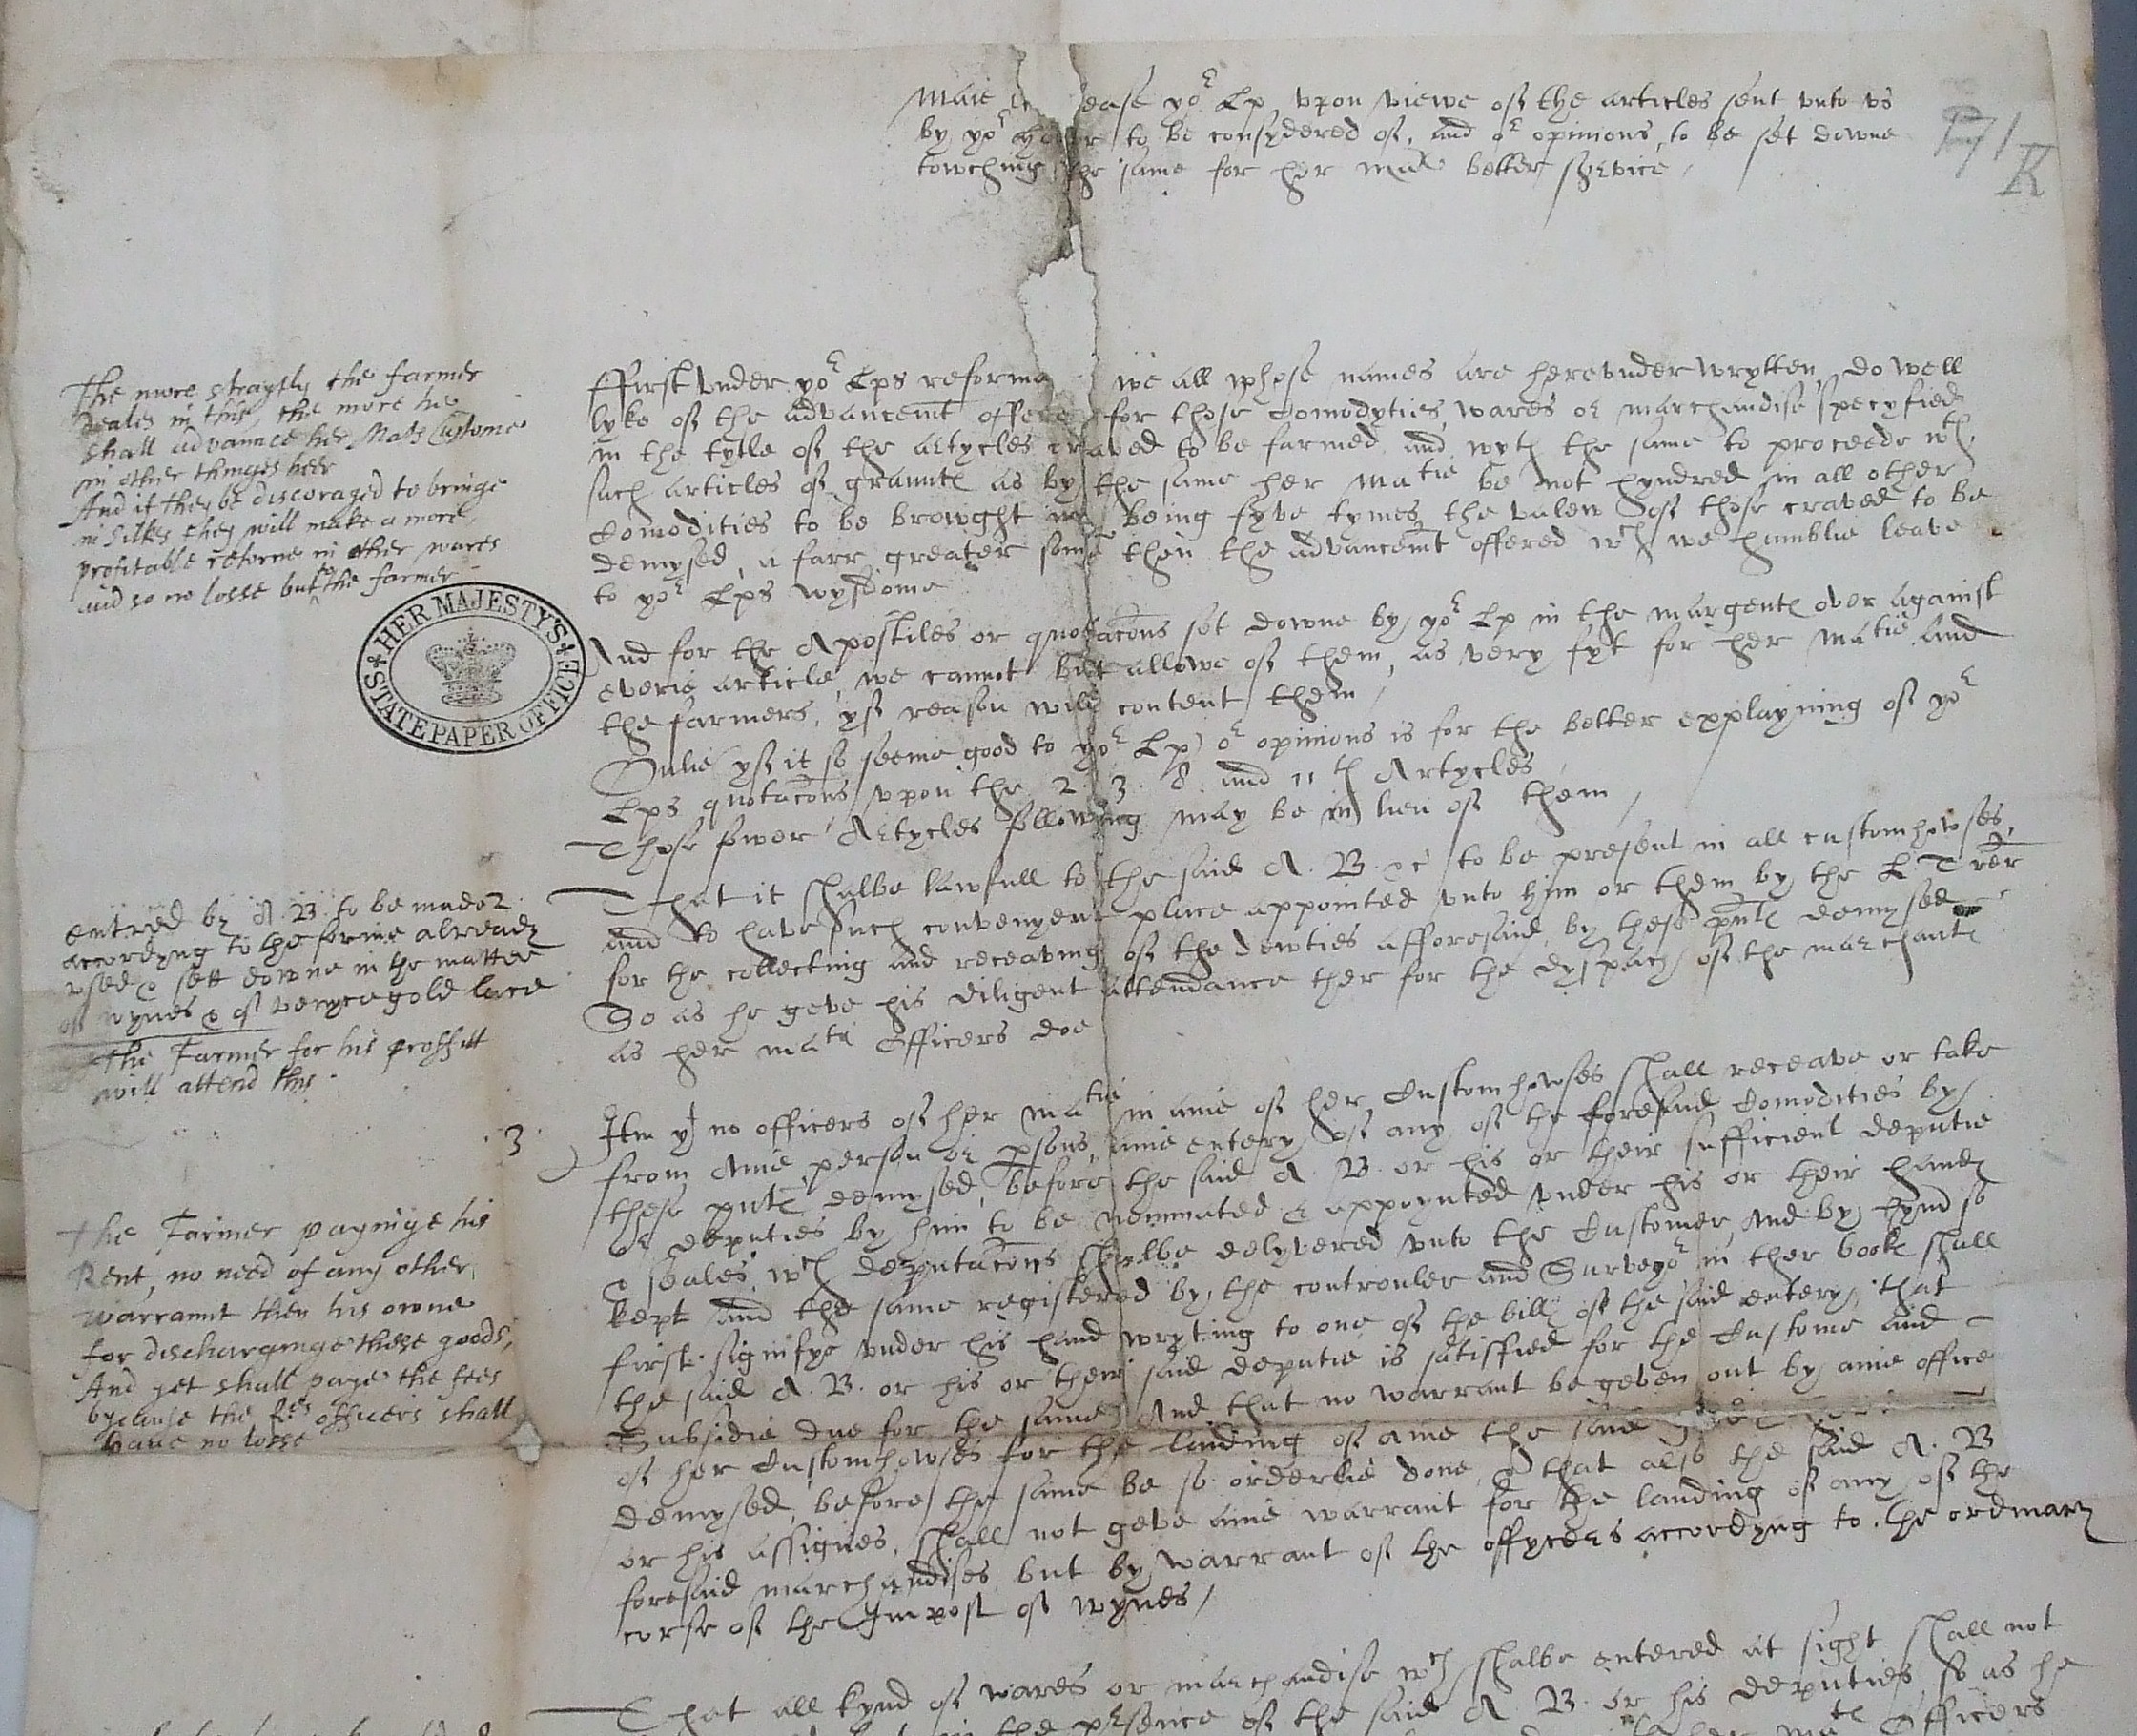 71
K
Maie it ease yor Lp vpon viewe of the articles sent vnto vs
by yor honor to be consydered of, and or opinions to be set downe
towching the same for her mats better service /
The more straytly the farmer
deales in this, the more he
shall advannce her Mats Custome
in other thinges heer
And if they be discoraged to bringe
in silkes they will make a more
profitable retorne in other wares
and so no losse but to the farmer
HER MAJESTY'S STATE PAPER OFFICE
ffirst vnder yor Lps reforma we all whose names are herevnder wrytten, do well
lyke of the advancemt offered for those comodyties, wares or marchandise specyfied
in the tytle of the artycles craved to be farmed and wyth the same to proceede wth
such articles of graunte as by the same her matie be not hyndred in all other
comodities to be browght in being fyve tymes the valew of those craved to be
demysed, a farr greater some then the advancemt offered wch we humblie leave
to yor Lps wysdome
And for the Apostiles or quotacons set downe by yor Lp in the margente over against
everie article, we cannot but allowe of them, as very fyt for her matie and
the farmers, yf reason will content them /
Onlie yf it so seeme good to yor Lp) or opinions is for the better explayning of yor
Lps quotacons vpon the 2. 3. 8. and 11th Artycles
Those fower Artycles following may be in lieu of them /
entred by A. B. to be made 2
accordyng to the forme already
vsed & sett downe in the matter
of wynes & of venyce gold lace
The Farmer for his proffitt
will attend this
That it shalbe lawfull to the said A. B. &c to be present in all customhowses,
and to have such convenyent place appointed vnto him or them by the L. Trer
for the collecting and receaving of the dewties afforesaid, by these pnte demysed
So as he geve his diligent attendance ther for the dyspach of the marchante
as her mats Officers doe
3
Itm yt no officers of her matie in anie of her Customhowses shall receave or take
from anie person or psons, anie entery of any of the foresaid comodities by
these pnte demysed, before the said A. B. or his or their sufficient deputie
or deputies by him to be nominated & appoynted vnder his or their hande
& seales, wch deputacons shalbe delyvered vnto the Customer, and by hym so
kept and the same registered by the controuler and Surveyor in ther booke shall
first signifye vnder his hand wryting to one of the bille of the said entery, that
the said A. B. or his or their said deputie is satisffied for the Custome and
Subsidie due for the same, And that no warrant be geven out by anie office
of her Customhowses for the landing of anie the same
demysed, before the same be so orderlie done, & that also the said A. B
or his assignes, shall not geve anie warrant for the landing of any of the
foresaid marchandises but by warrant of the offycers accordyng to the ordinary
corse of the Impost of wynes /
The Farmer payinge his
Rent, no need of any other
warrannt then his owne
for discharginge these goods,
And yet shall paye the fees
bycause the Qes officers shall
have no losse
That all kynd of wares or marchandise wch shalbe entered at sight shall not
in the presence of the said A. B. or his deputies, so as he
Officers